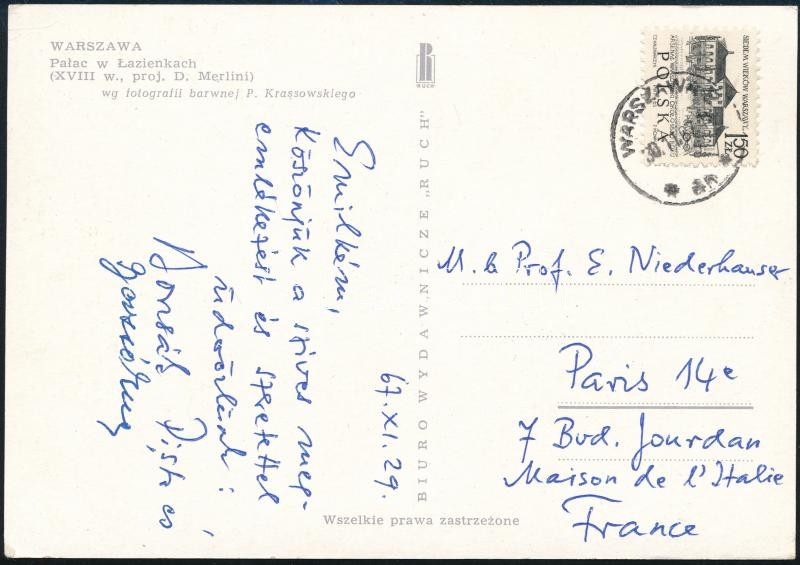 WARSZAWA
Pałac w Łazienkach
(XVIII w., proj. D. Merlini)
wg fotografii barwnej P. Krassowskiego
RUCH
Emilkém,
Köszönjük a szíves meg-
emlékezést és szeretettel
üdvözlünk:
Borsák Pista és
67.XI.29.
BIURO WYDAWNICZE „RUCH"
Wszelkie prawa zastrzeżone
SIEDEM WIEKÓW WARSZAWY
POLSKA
150
ZŁ
WARSZAWA
M. le Prof. E. Niederhauser
Paris 14e
7 Bvd. Jourdan
Maison de l'Italie
France